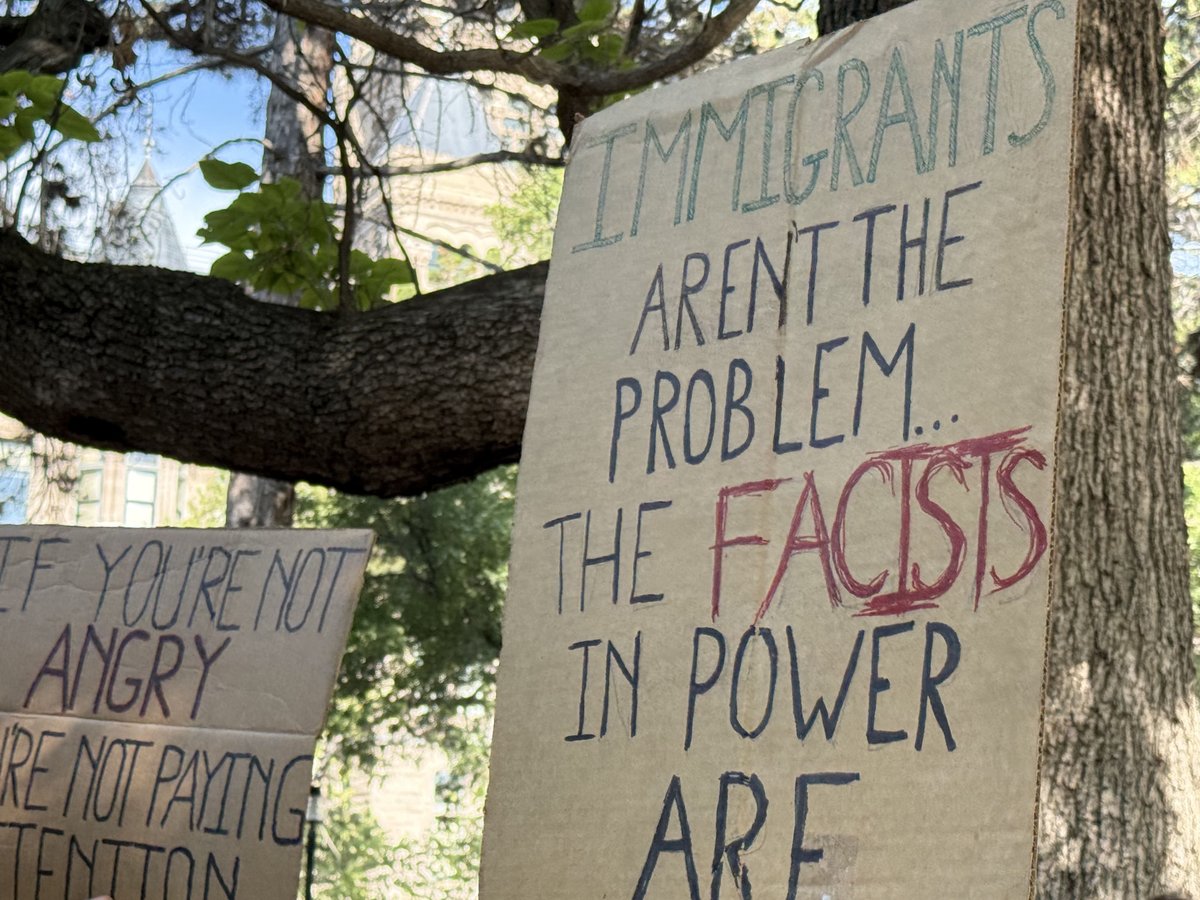 IF YOU'RE NOT
ANGRY
'RE NOT PAYING
TENTION
IMMIGRANTS
ARENT THE
PROBLEM...
THE FACISTS
IN POWER
ARE